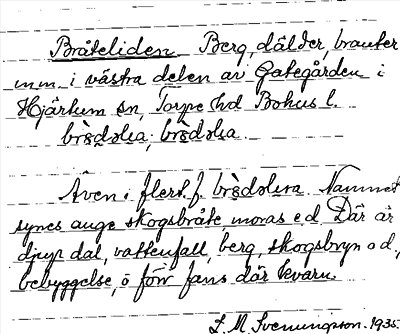 Bråteliden Berg, dälder, branter
m.m. i västra delen av Gategården i
Hjärtum sn, Torpe hd Bohus l.
Även i flert. f. Namnet
synes ange skogsbråte, moras e.d. Där är
djup dal, vattenfall, berg, skogsbryn o d,
bebyggelse, o förr fans där kvarn.
L. M. Svenungsson. 1935